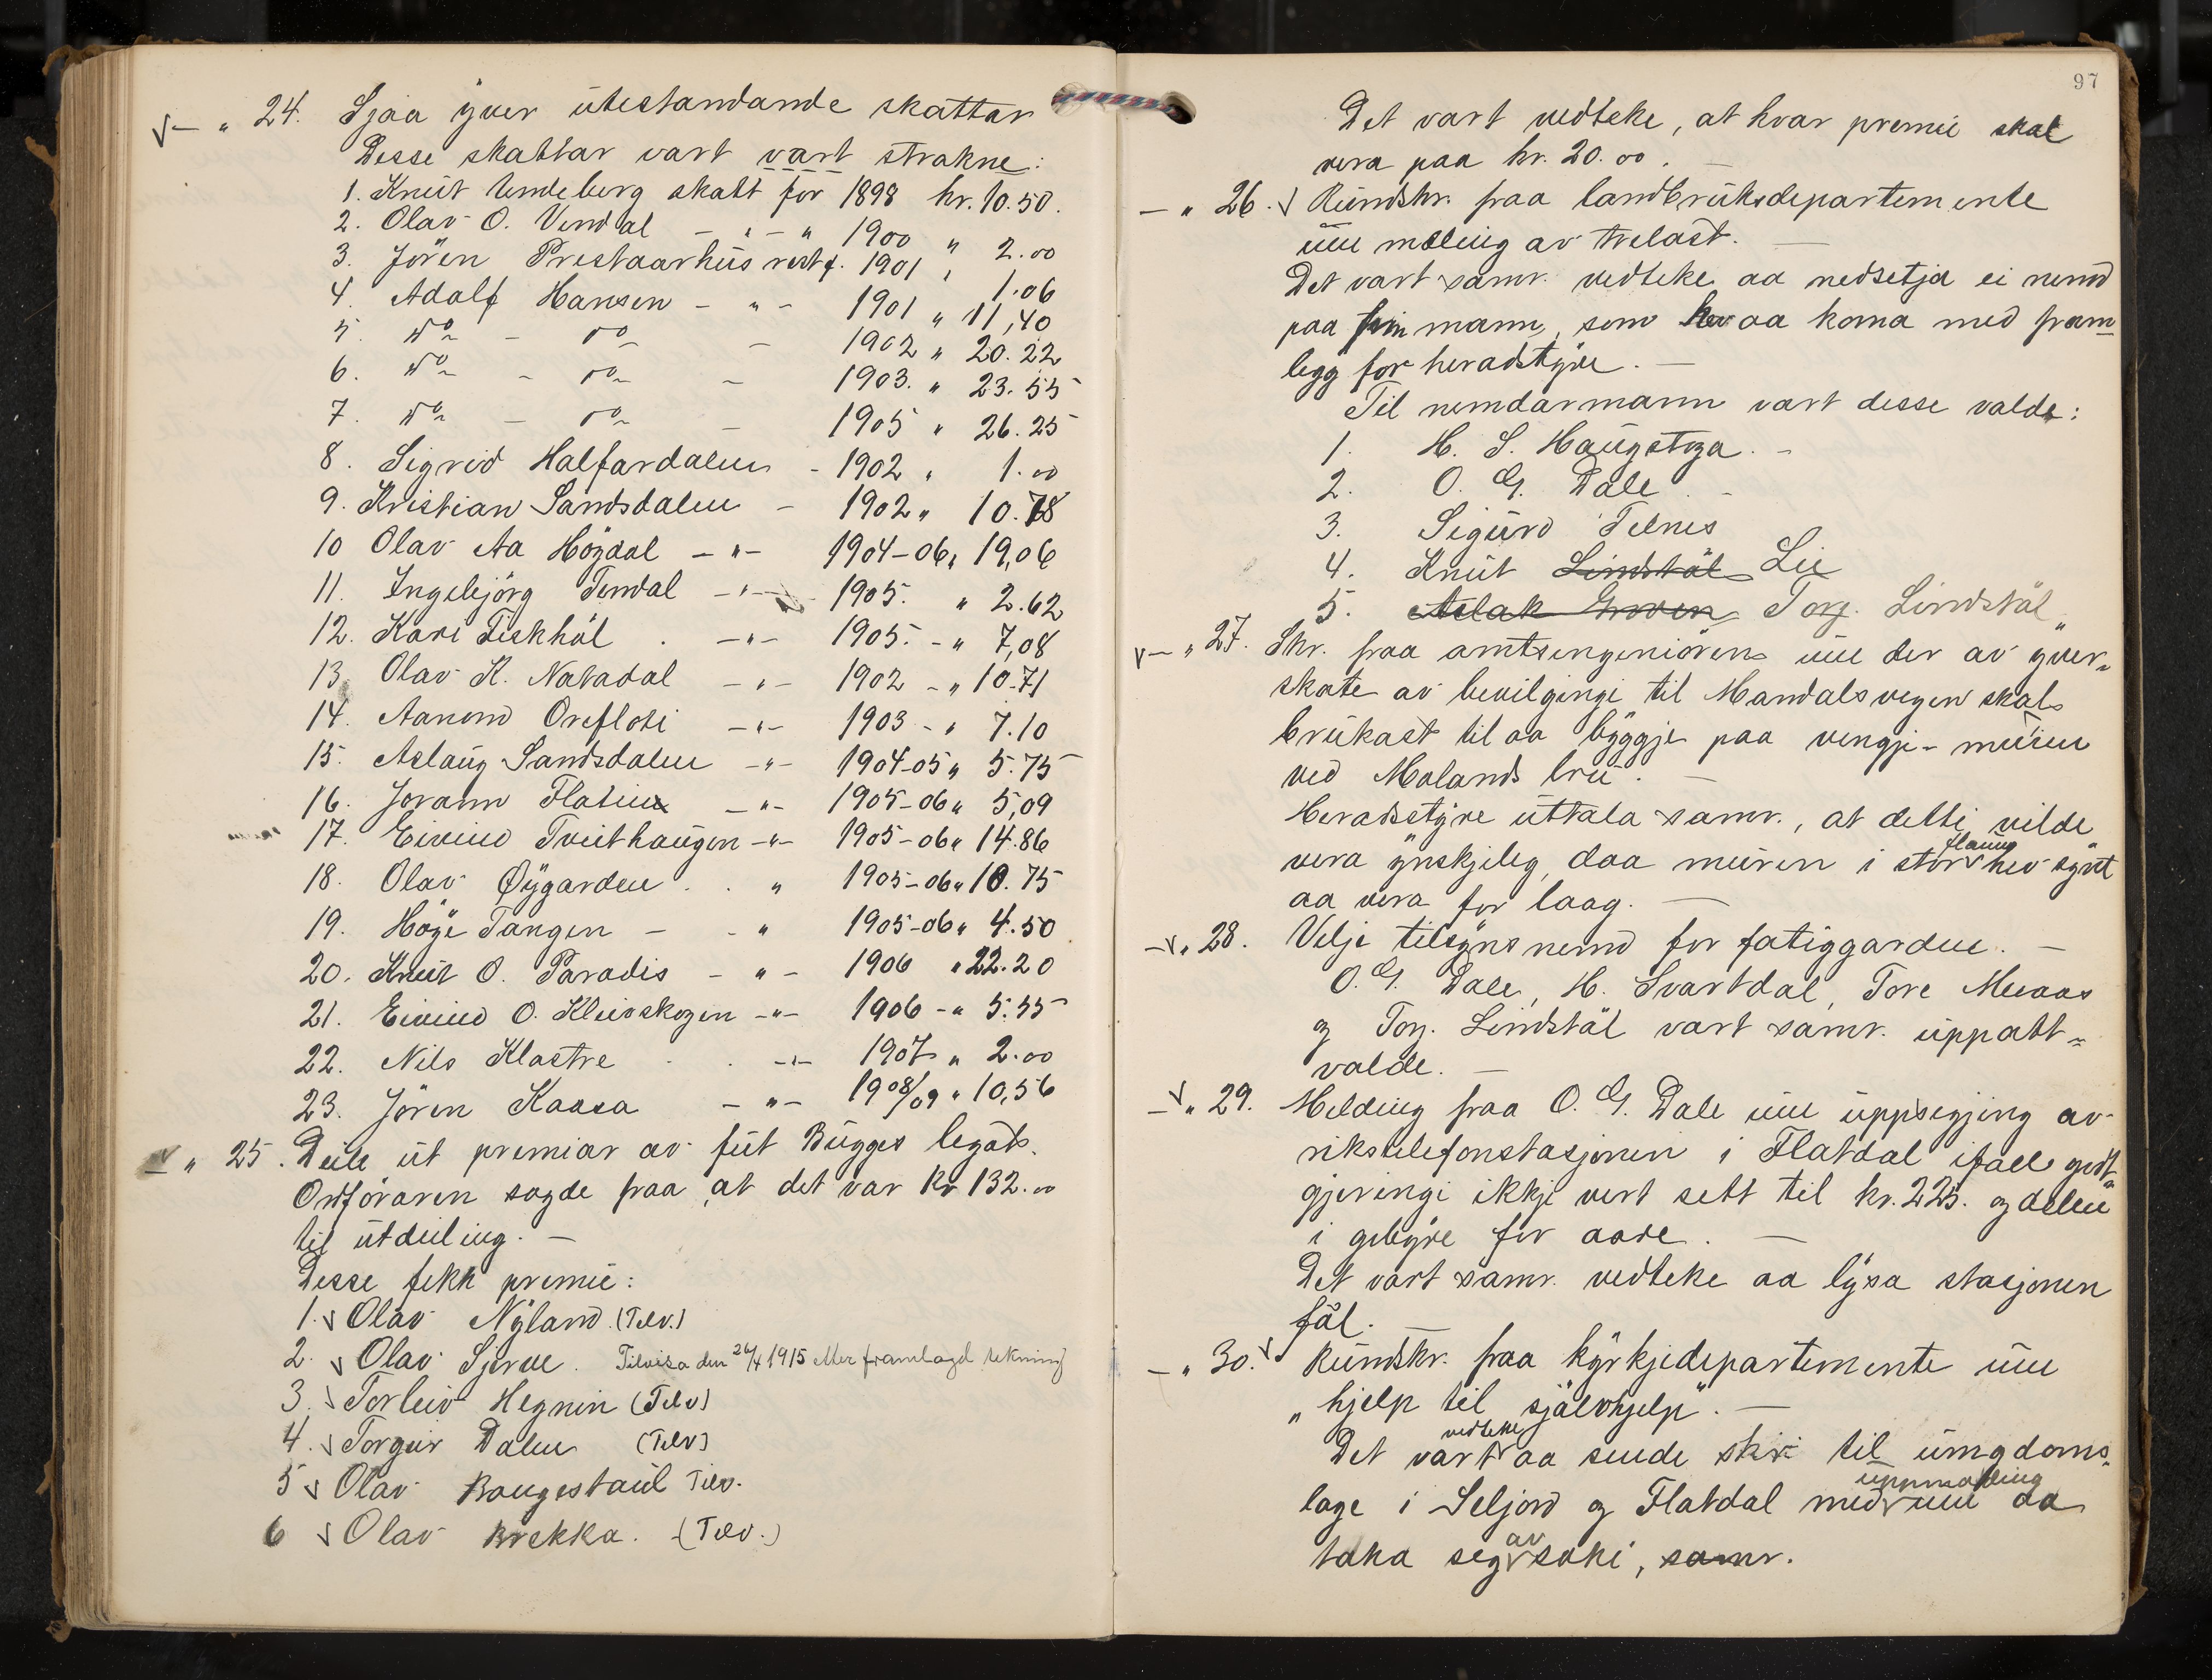 √ – „ 24. Sjaa yver utestandande skattar
Desse skattar vart vart strokne:
1. Knut Undeberg skatt for 1898 kr. 10.50.
2. Olav O. Vindal – „ – „ 1900 „ 2.00
3. Jören Prestaarhus rest f. 1901 „ 1.06
4. Adolf Hansen – „ – 1901 „ 11,40
5. do – do – 1902 „ 20.22
6. do – do – 1903. „ 23.55
7. do – do – 1905 „ 26.25
8. Sigrid Halfardalen – 1902 „ 1.00
9. Kristian Sandsdalen – 1902 „ 10.78
10 Olav Aa Högdal – „ – 1904–06 „ 19,06
11. Ingebjörg Tendal – „ – 1905. „ 2.62
12. Kari Fiskhöl . – „ – 1905. – „ 7,08
13 Olav K. Natadal – „ – 1902 – „ 10.71
14. Aanond Orefloti – „ – 1903 – „ 7.10
15. Aslaug Sandsdalen – „ – 1904–05 „ 5.75
16. Jorann Flatin – „ – 1905–06 „ 5,09
17. Eivind Tveithaugen – „ – 1905–06 „ 14.86
18. Olav Øygarden . . „ 1905–06 „ 10.75
19. Höge Tangen – – „ 1905–06 „ 4.50
20. Knut O. Paradis – „ – 1906 „ 22.20
21. Eivind O. Kleivskogen – „ – 1906 – „ 5.55
22. Nils Klastre . . – „ – 1907 „ 2.00
23. Jören Kaasa – „ – 1908/09 „ 10,56
√ – „ 25. Deile ut premiar av fut Bugges legat.
Ordföraren sagde fraa, at det var kr 132.00
til utdeiling. –
Desse fekk premie:
1. √ Olav Nyland. (Telv.)
2. √ Olav Sjerve. Tilvisa den 26/4 1915 etter framlagd rekning
3. √ Torleiv Hegnin (Telv)
4. √ Torgeir Dalen (Telv)
5 √ Olav Baugestaul Telv.
6 √ Olav Brekka. (Telv.)
97
Det vart vedteke, at hvar premie skal
vera paa kr. 20.00. –
– „ 26. √ Rundskr. fraa landbruksdepartemente
um mæling av trelast. –
Det vart samr. vedteke aa nedsetja ei nemd
paa fim mann, som hev aa koma med fram-
legg for heradstyre. –
Til nemdarmann vart desse valde:
1. H. S. Haugstoga. –
2. O. G. Dale. –
3. Sigurd Telnes
4. Knut Lindstöl Lie
5. Aslak Groven Torj. Lindstöl
√ – „ 27. Skr. fraa amtsingeniören um der av yver-
skote av bevilgingi til Mandalsvegen skal
brukast til aa byggje paa vengje-muren
ved Molands bru. –
Heradsstyre uttala samr., at dette vilde
vera ynskjeleg, daa muren i stor flaum hev synt
aa vera for laag. –
– √ „ 28. Velje tilsynsnemd for fatiggarden. –
O. G. Dale, H. Svartdal, Tore Moraas
og Torj. Lindstöl vart samr. uppatt-
valde. –
– √ „ 29. Melding fraa O. G. Dale um uppsegjing av
rikstelefonstasjonen i Flatdal ifall godt-
gjeringi ikkje vert sett til kr. 225. og delen
i gebyre for aare. –
Det vart samr. vedteke aa lysa stasjonen
fål. –
– „ 30. √ Rundskr. fraa kyrkjedepartemente um
„hjelp til sjölvhjelp". –
Det vart vedteke aa sende skri til ungdoms-
lage i Seljord og Flatdal med uppmoding um aa
taka seg av saki, samr.